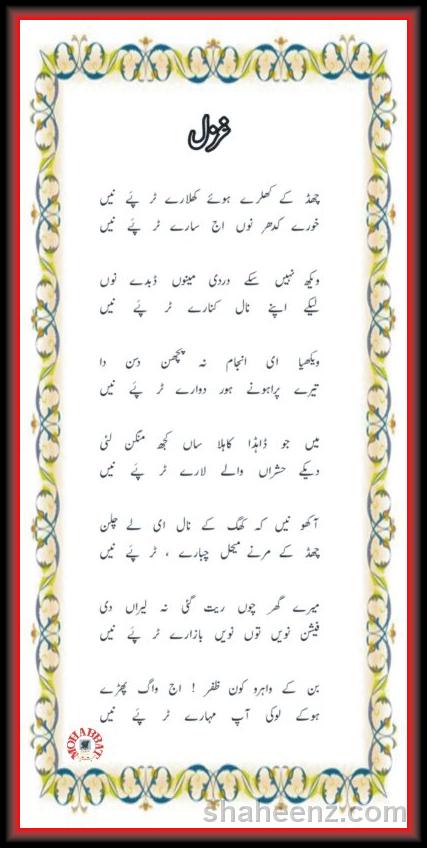 غزل
چھڈ کے کھلرے ہوئے کھلارے ٹر پئے نیں
خورے کدھر نوں اج سارے ٹر پئے نیں
ویکھ نہیں سکے دردی مینوں ڈبدے نوں
لیکے اپنے نال کنارے ٹر پئے نیں
ویکھیا ای انجام نہ پچھن دسن دا
تیرے پراہونے ہور دوارے ٹر پئے نیں
میں جو ڈاہڈا کاہلا ساں کجھ منگن لئی
دیکے حشراں والے لارے ٹر پئے نیں
آکھو نیں کہ کھگ کے نال ای لے چلن
چھڈ کے مرنے میحل چبارے ، ٹر پئے نیں
میرے گھر چوں ریت گئی نہ لیراں دی
فیشن نویں توں نویں بازارے ٹر پئے نیں
بن کے واہرو کون ظفر ! اج واگ پھڑے
ہوکے لوکی آپ مہارے ٹر پئے نیں
MOHABBAT
shaheenz.com